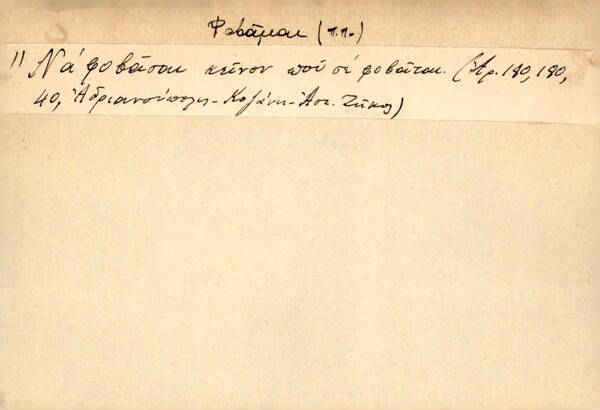 Φοβᾶμαι (π.π.)
11 Νά φοβᾶσαι κεῖνον πού σέ φοβᾶται. (Ἀρ. 180, 180,
40, Ἀδριανούπολις - Κοζάνη - Ἀστ. Ζῆκος)